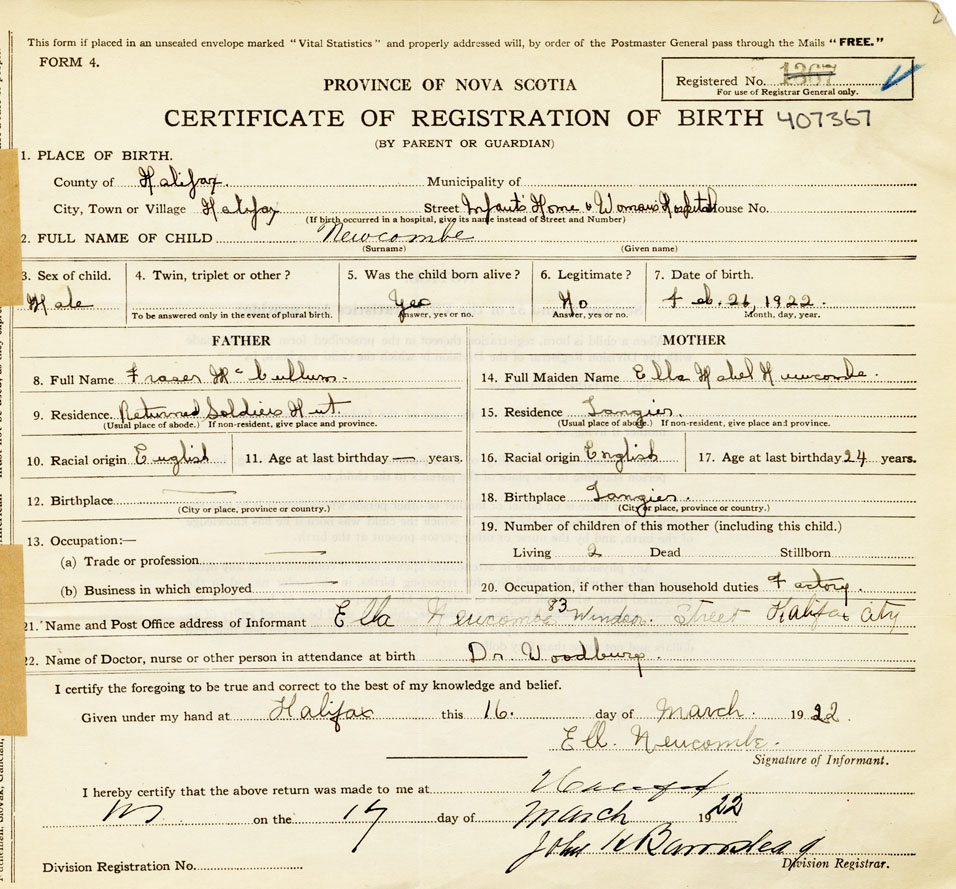 This form if placed in an unsealed envelope marked "Vital Statistics" and properly addressed will, by order of the Postmaster General pass through the Mails "FREE."
FORM 4.
Registered No. 1367
For use of Registrar General only.
PROVINCE OF NOVA SCOTIA
CERTIFICATE OF REGISTRATION OF BIRTH 407367
(BY PARENT OR GUARDIAN)
1. PLACE OF BIRTH.
County of Halifax. Municipality of
City, Town or Village Halifax Street Infants Home & Womans Hospital House No.
(If birth occurred in a hospital, give its name instead of Street and Number)
2. FULL NAME OF CHILD Newcombe
(Surname) (Given name)
3. Sex of child. 4. Twin, triplet or other? 5. Was the child born alive? 6. Legitimate? 7. Date of birth.
Male Yes No Feb. 26, 1922.
To be answered only in the event of plural birth. Answer, yes or no. Answer, yes or no. Month, day, year.
FATHER MOTHER
8. Full Name Fraser McCullum. 14. Full Maiden Name Ella Mabel Newcombe.
9. Residence. Returned Soldiers Hut. 15. Residence Tangier.
(Usual place of abode.) If non-resident, give place and province. (Usual place of abode.) If non-resident, give place and province.
10. Racial origin English 11. Age at last birthday — years. 16. Racial origin English 17. Age at last birthday 24 years.
12. Birthplace — 18. Birthplace Tangier.
(City or place, province or country.) (City or place, province or country.)
13. Occupation:— 19. Number of children of this mother (including this child.)
(a) Trade or profession — Living 2 Dead Stillborn
(b) Business in which employed — 20. Occupation, if other than household duties Factory.
21. Name and Post Office address of Informant Ella Newcombe 83 Windsor. Street Halifax City
22. Name of Doctor, nurse or other person in attendance at birth Dr. Woodbury.
I certify the foregoing to be true and correct to the best of my knowledge and belief.
Given under my hand at Halifax this 16. day of March. 1922.
Ell. Newcombe.
Signature of Informant.
I hereby certify that the above return was made to me at Halifax
NS on the 17 day of March 1922
John H Barnstead
Division Registration No. Division Registrar.